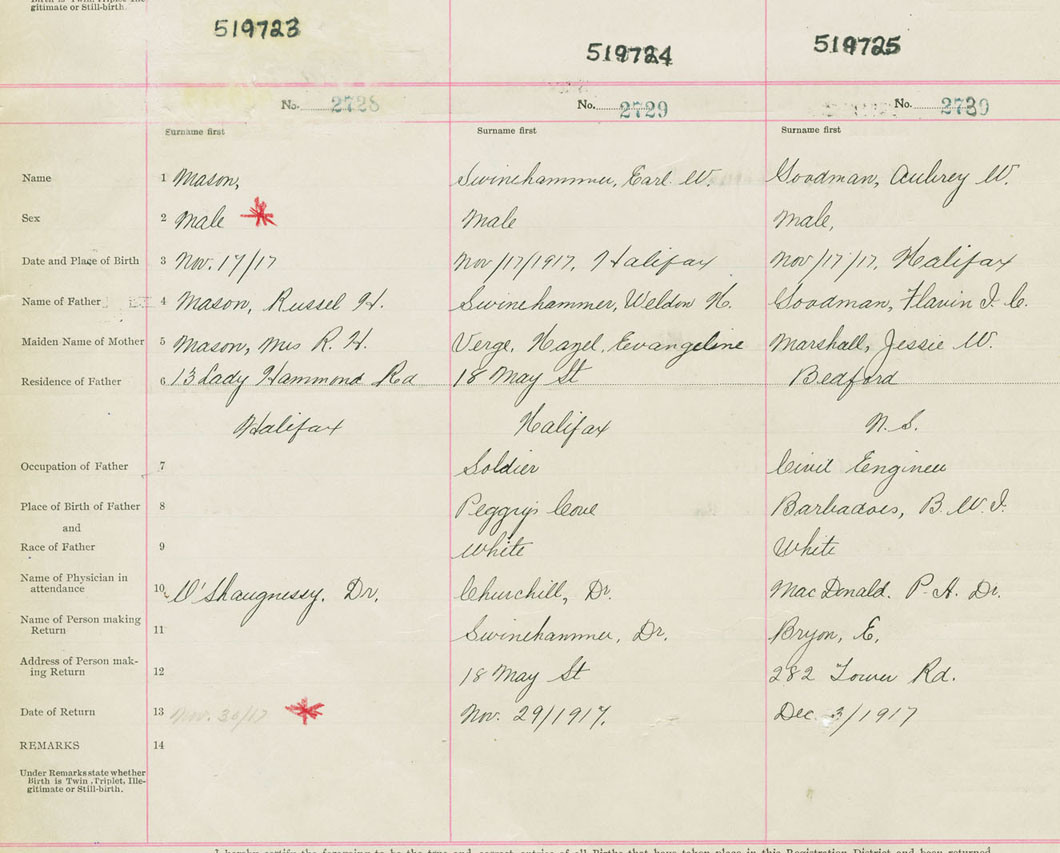 gitimate or Still-birth.
519723 519724 519725
No. 2728 No. 2729 No. 2730
Surname first Surname first Surname first
Name 1 Mason, Swinehammer, Earl W. Goodman, Aubrey W.
Sex 2 Male Male Male,
Date and Place of Birth 3 Nov. 17/17 Nov/17/1917, Halifax Nov/17/17, Halifax
Name of Father 4 Mason, Russel H. Swinehammer, Weldon H. Goodman, Flavin I. C.
Maiden Name of Mother 5 Mason, Mrs R. H. Verge, Hazel, Evangeline Marshall, Jessie W.
Residence of Father 6 13 Lady Hammond Rd 18 May St Bedford
Halifax Halifax N.S.
Occupation of Father 7 Soldier Civil Engineer
Place of Birth of Father 8 Peggy's Cove Barbadoes, B.W.I.
and
Race of Father 9 White White
Name of Physician in
attendance 10 O'Shaugnessy, Dr. Churchill, Dr. MacDonald. P.A. Dr.
Name of Person making
Return 11 Swinehammer, Dr. Bryon, E,
Address of Person mak-
ing Return 12 18 May St 282 Tower Rd.
Date of Return 13 Nov. 30/17 Nov. 29/1917. Dec. 3/1917
REMARKS 14
Under Remarks state whether
Birth is Twin, Triplet, Ille-
gitimate or Still-birth.
I hereby certify the foregoing to be the true and correct entries of all Births that have taken place in this Registration District and been returned